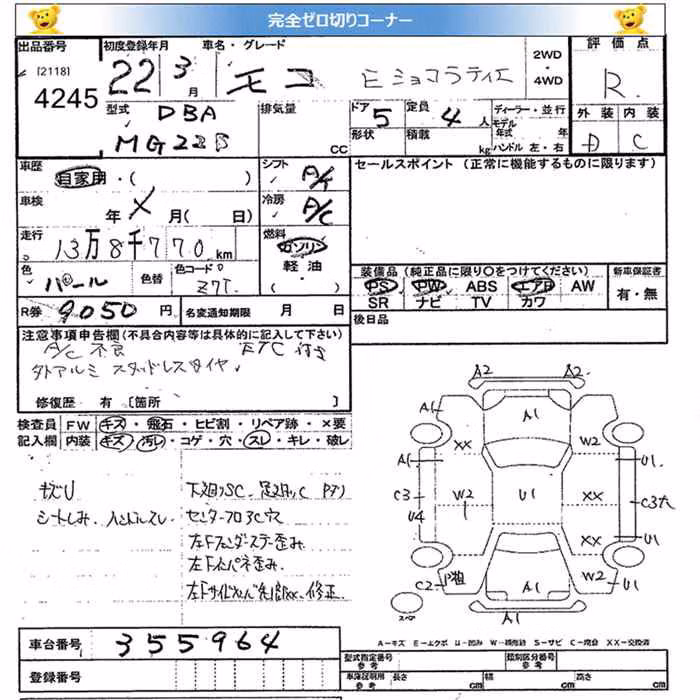 完全ゼロ切りコーナー
出品番号
[2118]
4245
初度登録年月
22 3月
車名・グレード
モコ Eショコラティエ
2WD
・
4WD
評価点
R
型式
DBA
MG22S
排気量
CC
ドア 5
形状
定員 4人
積載 kg
ディーラー・並行
モデル
年式 年
ハンドル 左・右
外装 内装
D C
車歴
自家用・( )
シフト A/T
セールスポイント (正常に機能するものに限ります)
車検
年 X 月( 日)
冷房 A/C
走行
13万8千770km
燃料
ガソリン
軽油
・( )
色
パール
色替
色コード
Z7T
装備品(純正品に限り○をつけてください)
PS PW ABS エアB AW
SR ナビ TV カワ
新車保証書
有・無
R券 9050円
名変通知期限 月 日
後日品
注意事項申告欄(不具合内容等は具体的に記入して下さい)
A/C不良 ETC付き
外アルミ スタッドレスタイヤ
修復歴 有 [箇所
検査員 FW キズ・飛石・ヒビ割・リペア跡・×要
記入欄 内装 キズ・汚レ・コゲ・穴・スレ・キレ・破レ
キズU
シートしみ、ハンドルスレ
下廻りSC、足廻りC
センターフロアC穴
左Fフェンダーステー歪み
左Fインパネ歪み
修正
A2 A2
A1 A1
XX W2
A1 U1
C3 W2 U1 XX C3大
U4
XX U1
C2 P粗 A1 W2 U1
A1
スペア
A-キズ E-エクボ U-凹み W-補修跡 S-サビ C-腐食 XX-交換済
車台番号 355964
登録番号
型式指定番号
参考
類別区分番号
参考
車庫証明用
参考
長さ cm 幅 cm 高さ cm